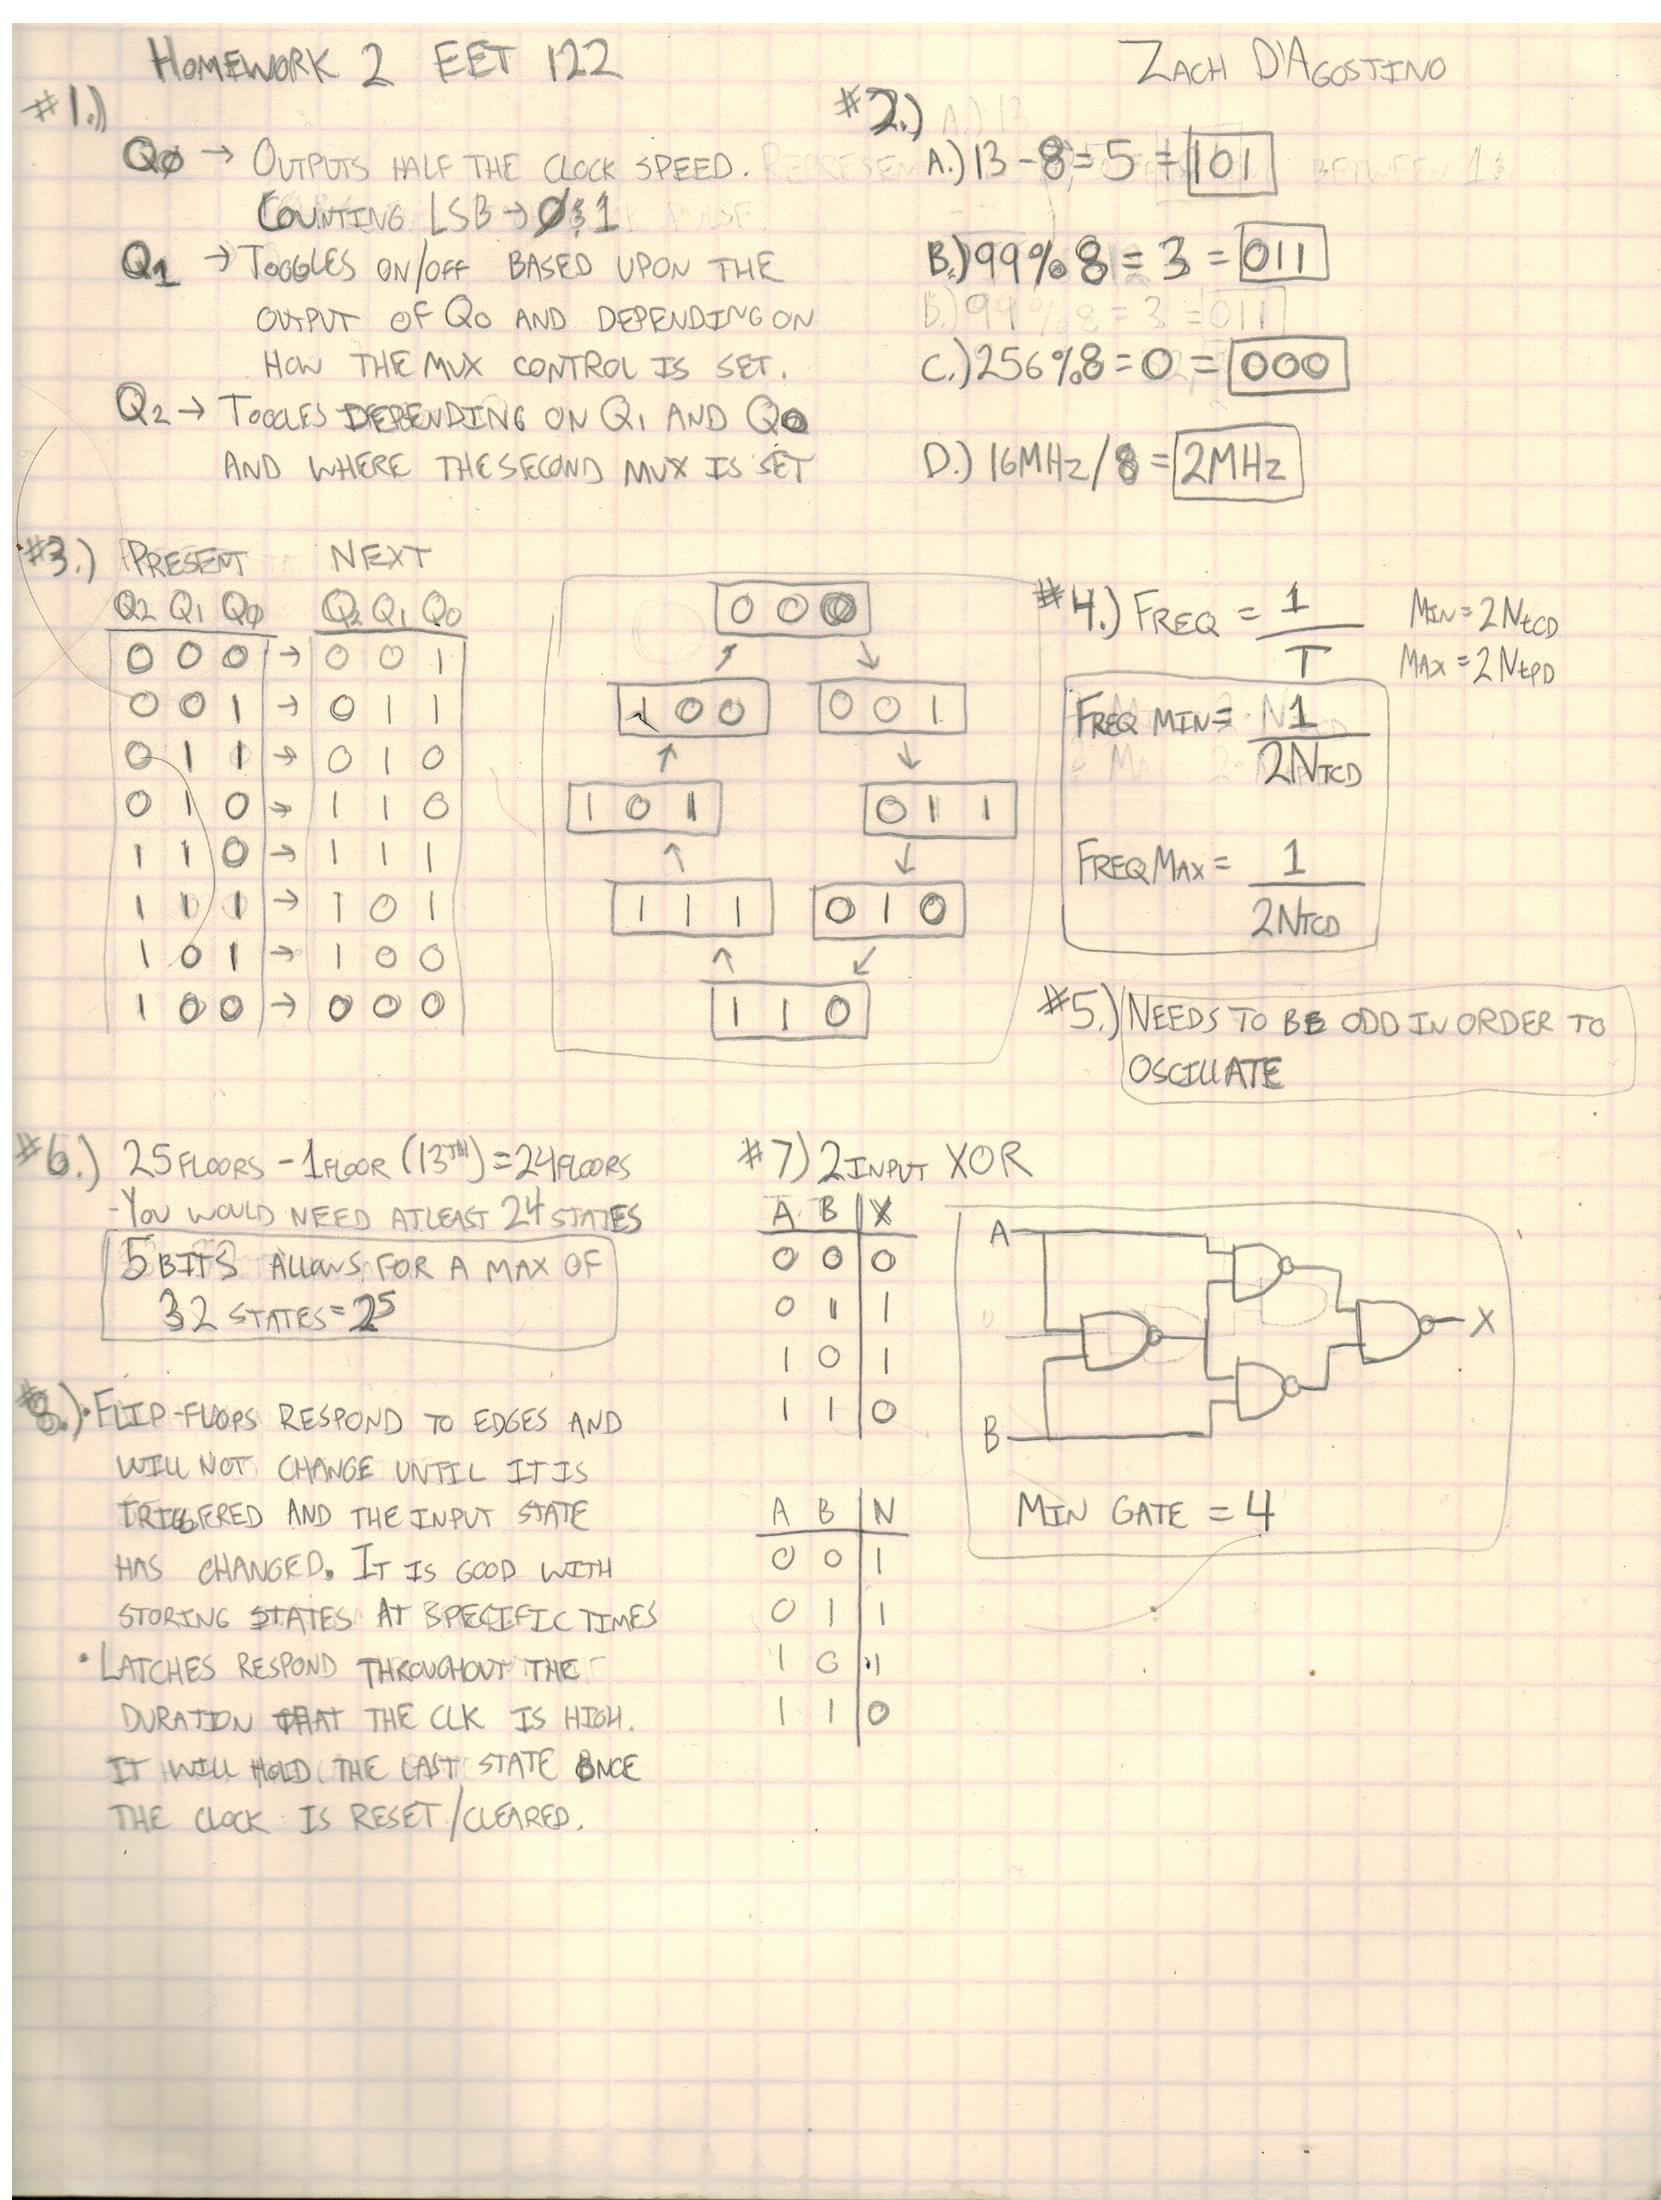 HOMEWORK 2 EET 122
ZACH D'AGOSTINO
#1.)
Q0 → OUTPUTS HALF THE CLOCK SPEED.
COUNTING LSB → 0 & 1
Q1 → TOGGLES ON/OFF BASED UPON THE
OUTPUT OF Q0 AND DEPENDING ON
HOW THE MUX CONTROL IS SET.
Q2 → TOGGLES DEPENDING ON Q1 AND Q0
AND WHERE THE SECOND MUX IS SET
#2.)
A.) 13 - 8 = 5 = 101
B.) 99 % 8 = 3 = 011
B.) 99 % 8 = 3 = 011
C.) 256 % 8 = 0 = 000
D.) 16MHz / 8 = 2MHz
#3.) PRESENT NEXT
Q2 Q1 Q0 Q2 Q1 Q0
0 0 0 → 0 0 1
0 0 1 → 0 1 1
0 1 1 → 0 1 0
0 1 0 → 1 1 0
1 1 0 → 1 1 1
1 1 1 → 1 0 1
1 0 1 → 1 0 0
1 0 0 → 0 0 0
0 0 0
1 0 0
0 0 1
1 0 1
0 1 1
1 1 1
0 1 0
1 1 0
#4.) FREQ = 1
T
MIN = 2NtCD
MAX = 2NtPD
FREQ MIN = 1
2NTCD
FREQ MAX = 1
2NTCD
#5.) NEEDS TO BE ODD IN ORDER TO
OSCILLATE
#6.) 25 FLOORS - 1 FLOOR (13TH) = 24 FLOORS
- YOU WOULD NEED ATLEAST 24 STATES
5 BITS ALLOWS FOR A MAX OF
32 STATES = 2⁵
#7) 2 INPUT XOR
A B X
0 0 0
0 1 1
1 0 1
1 1 0
A
X
B
MIN GATE = 4
A B N
0 0 1
0 1 1
1 0 1
1 1 0
#8.) • FLIP-FLOPS RESPOND TO EDGES AND
WILL NOT CHANGE UNTIL IT IS
TRIGGERED AND THE INPUT STATE
HAS CHANGED. IT IS GOOD WITH
STORING STATES AT SPECIFIC TIMES
• LATCHES RESPOND THROUGHOUT THE
DURATION THAT THE CLK IS HIGH.
IT WILL HOLD THE LAST STATE ONCE
THE CLOCK IS RESET/CLEARED.